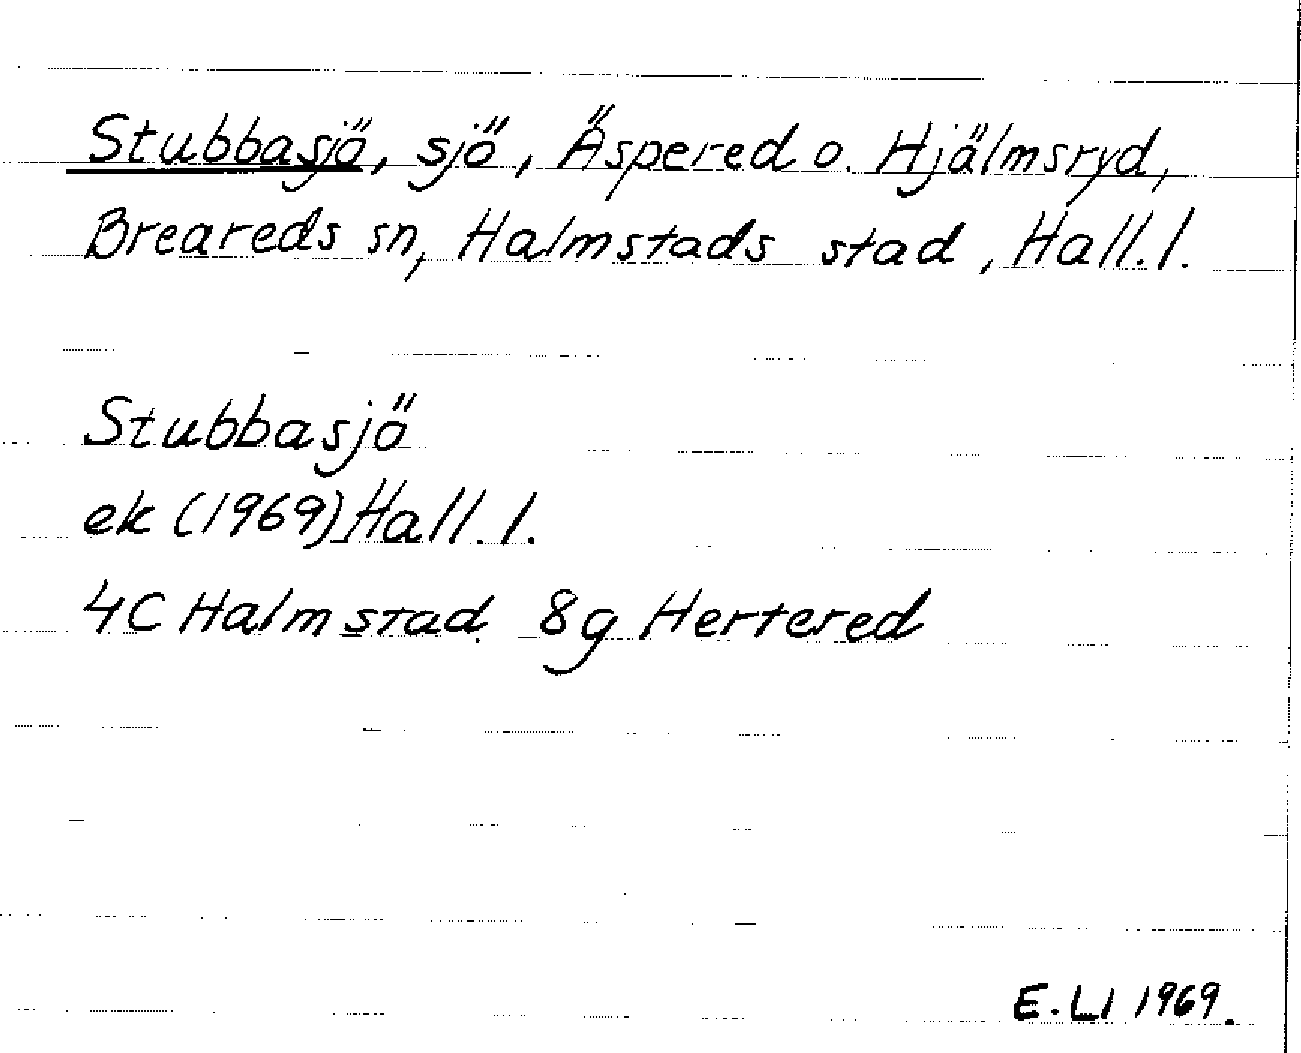 Stubbasjö, sjö, Äspered o. Hjälmsryd,
Breareds sn, Halmstads stad, Hall. l.
Stubbasjö
ek (1969) Hall. l.
4C Halmstad 8g Hertered
E. Ll 1969.